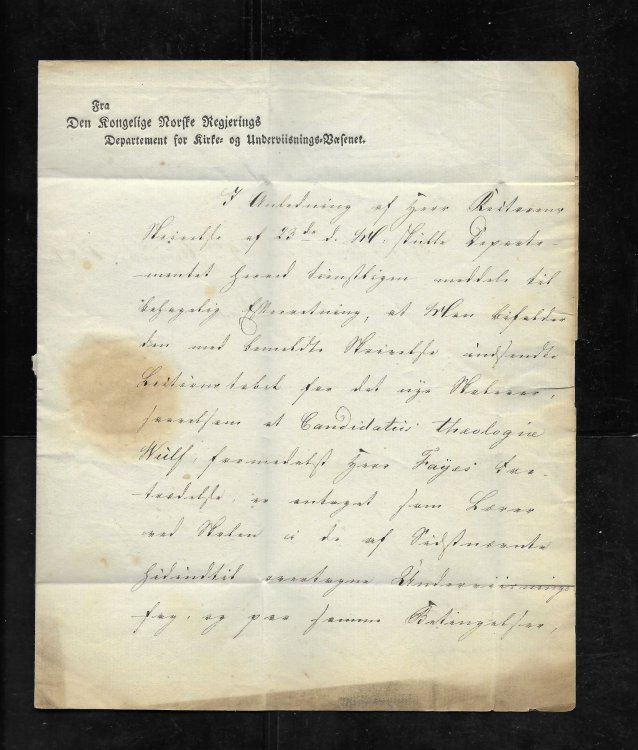 Fra
Den Kongelige Norske Regjerings
Departement for Kirke- og Underviisnings-Væsenet.
I Anledning af Herr Rectorens
Skrivelse af 23de d. M. skulde Departe-
mentet herved tjenstligen meddele til
behagelig Efterretning, at Man bifalder
den med bemeldte Skrivelse indsendte
Lectionstabel for det nye Skoleaar,
saavelsom at Candidatus theologiæ
Wulf, formedelst Herr Fayes Fra-
trædelse, er antaget som Lærer
ved Skolen i de af Sidstnævnte
hidindtil overtagne Underviisnings-
fag, og paa samme Betingelser,